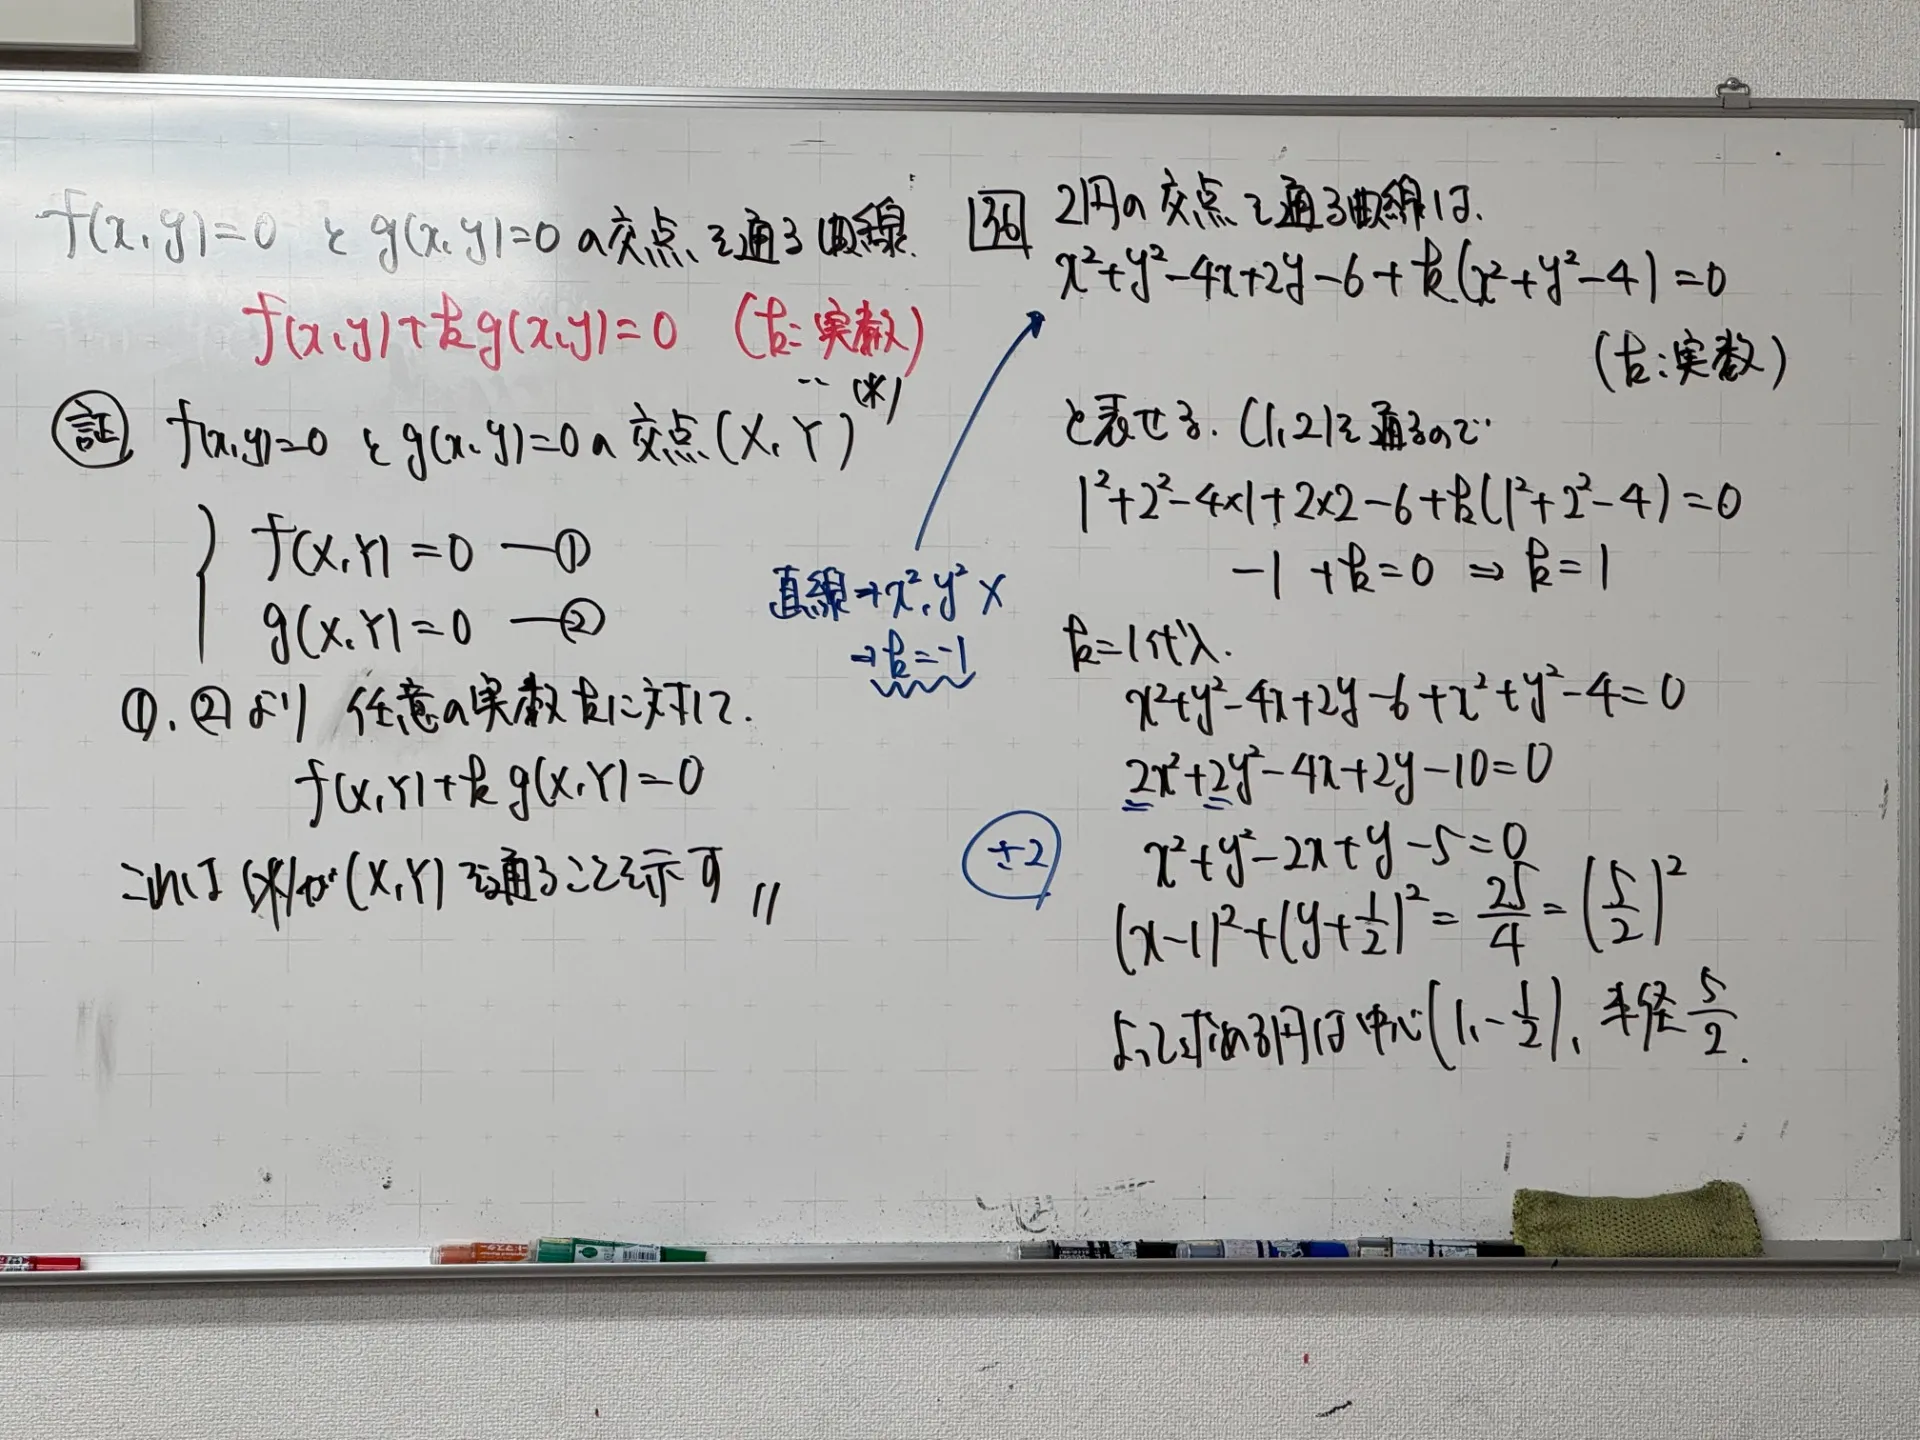 f(x,y)=0 と g(x,y)=0 の交点を通る曲線.
f(x,y)+kg(x,y)=0 (k:実数)
…(*)
証 f(x,y)=0 と g(x,y)=0 の交点(X,Y)
f(X,Y)=0 ―①
g(X,Y)=0 ―②
①,②より 任意の実数kに対して.
f(X,Y)+kg(X,Y)=0
これは(*)が(X,Y)を通ることを示す〃
直線→x²,y² ×
→k=-1
36 2円の交点を通る曲線は.
x²+y²-4x+2y-6+k(x²+y²-4)=0
(k:実数)
と表せる.(1,2)を通るので
1²+2²-4×1+2×2-6+k(1²+2²-4)=0
-1+k=0 ⇒ k=1
k=1代入.
x²+y²-4x+2y-6+x²+y²-4=0
2x²+2y²-4x+2y-10=0
÷2 x²+y²-2x+y-5=0
(x-1)²+(y+1/2)²=25/4=(5/2)²
よって求める円は中心(1,-1/2),半径5/2.